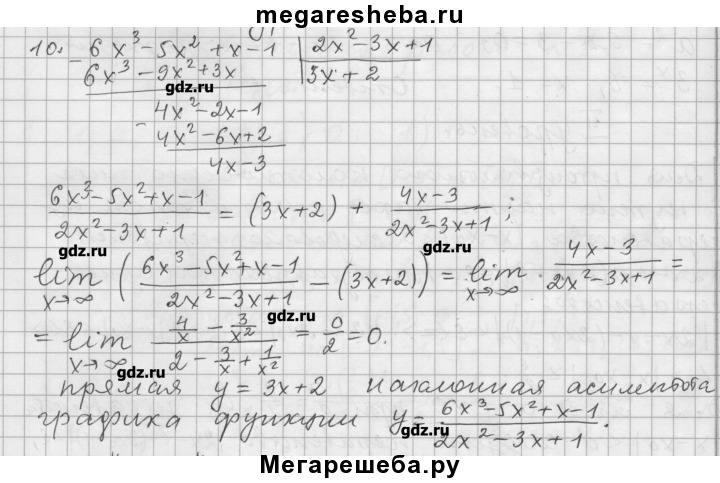 megaresheba.ru
10. 6x³-5x²+x-1 | 2x²-3x+1
6x³-9x²+3x 3x+2
gdz.ru gdz.ru
4x²-2x-1
- 4x²-6x+2
4x-3
(6x³-5x²+x-1)/(2x²-3x+1) = (3x+2) + (4x-3)/(2x²-3x+1);
gdz.ru gdz.ru
lim x→∞ ((6x³-5x²+x-1)/(2x²-3x+1) - (3x+2)) = lim x→∞ (4x-3)/(2x²-3x+1) =
gdz.ru
= lim x→∞ (4/x - 3/x²)/(2 - 3/x + 1/x²) = 0/2 = 0.
gdz.ru
прямая y = 3x+2 наклонная асимптота
графика функции y = (6x³-5x²+x-1)/(2x²-3x+1).
gdz.ru gdz.ru
Мегарешеба.ру